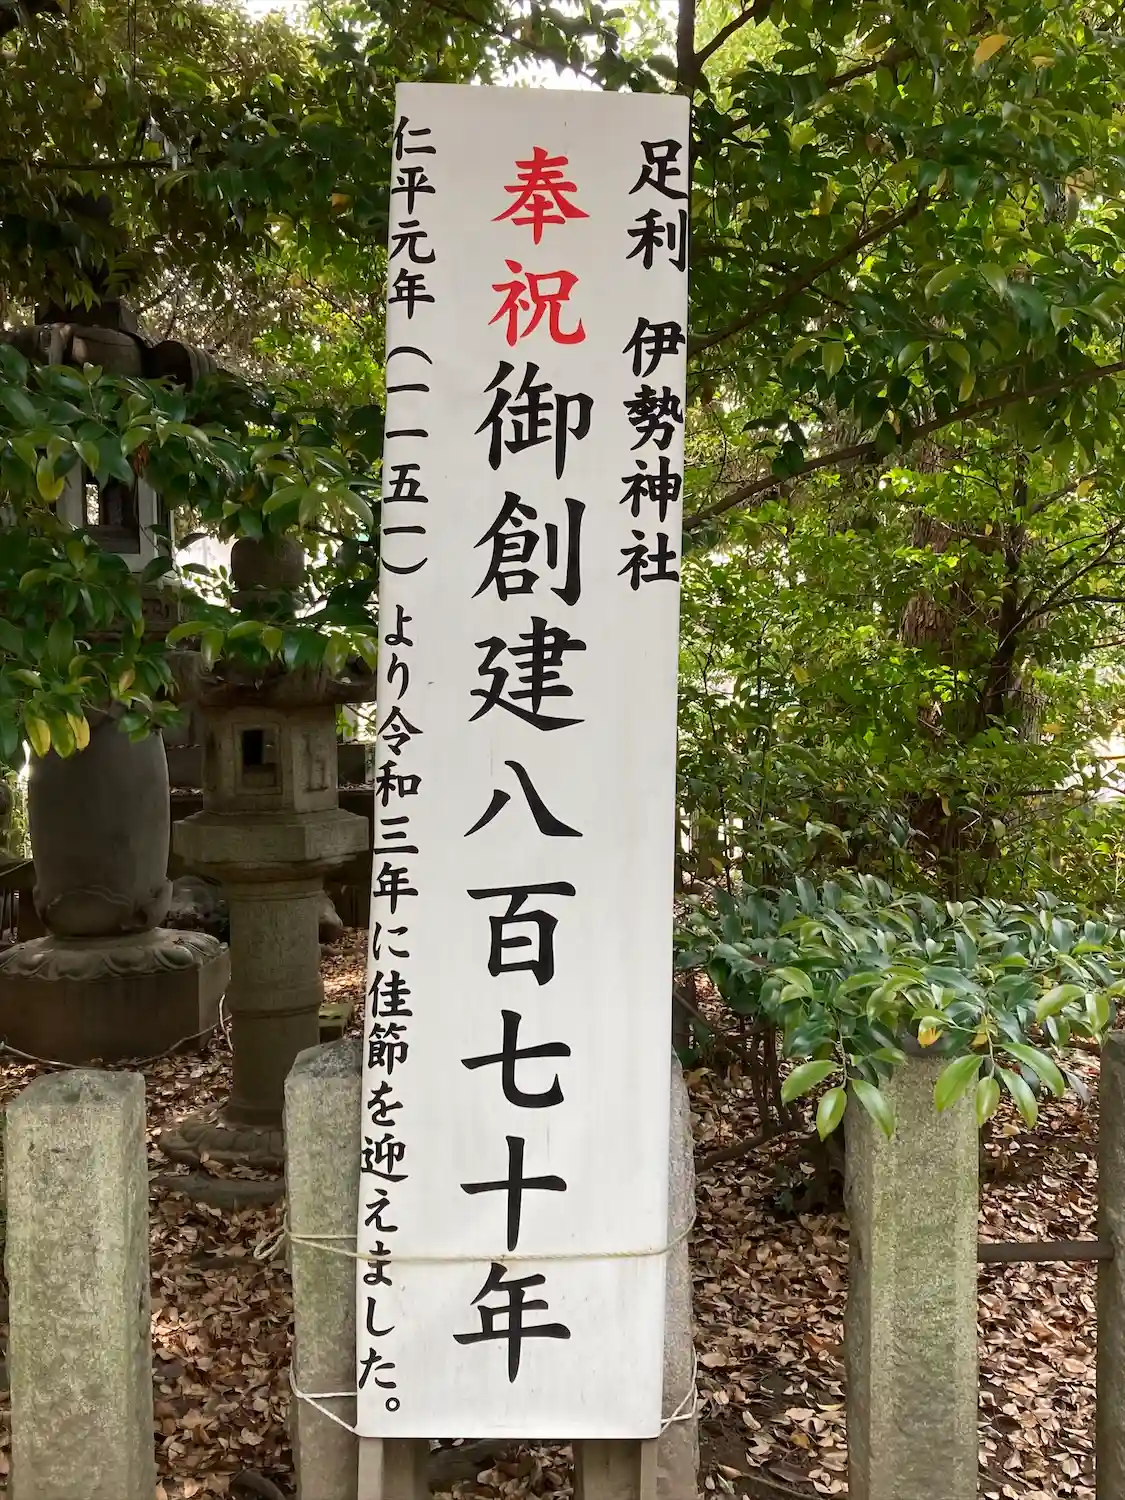 足利 伊勢神社
奉祝御創建八百七十年
仁平元年(一一五一)より令和三年に佳節を迎えました。